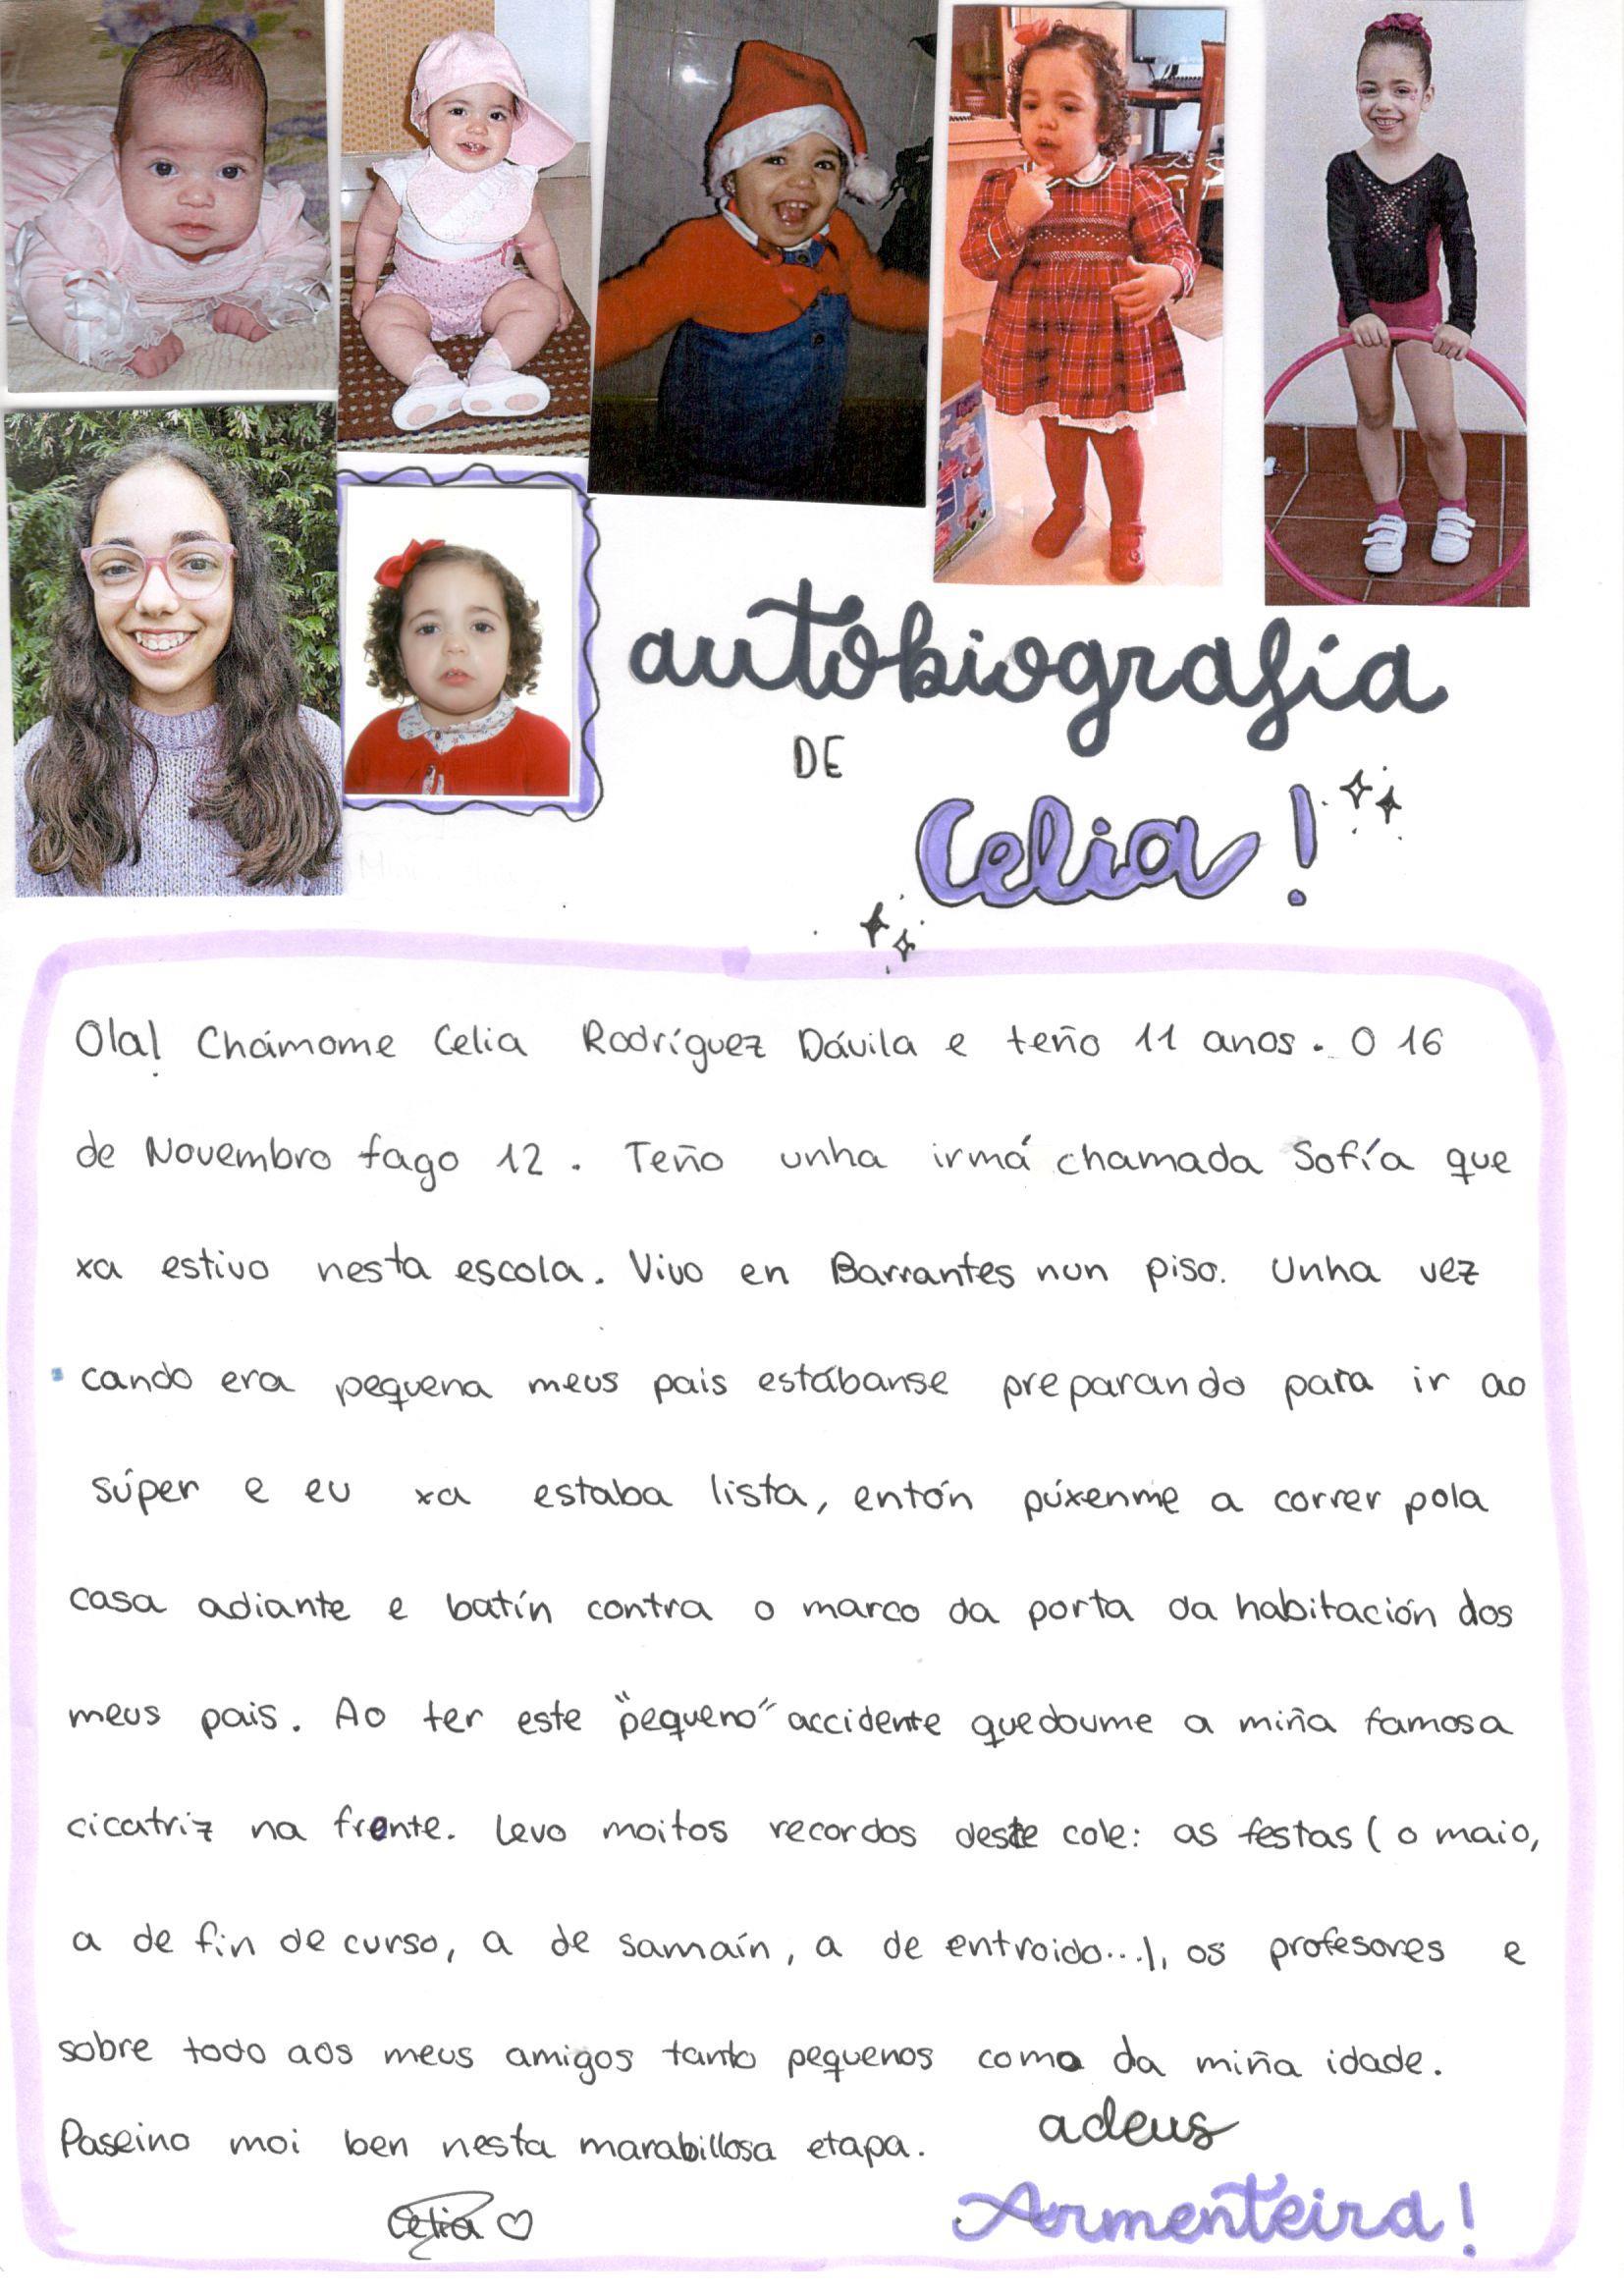 autobiografía
DE
Celia!
Ola! Chámome Celia Rodríguez Dávila e teño 11 anos. O 16
de Novembro fago 12. Teño unha irmá chamada Sofía que
xa estivo nesta escola. Vivo en Barrantes nun piso. Unha vez
cando era pequena meus pais estábanse preparando para ir ao
súper e eu xa estaba lista, entón púxenme a correr pola
casa adiante e batín contra o marco da porta da habitación dos
meus pais. Ao ter este "pequeno" accidente quedoume a miña famosa
cicatriz na fronte. Levo moitos recordos deste cole: as festas (o maio,
a de fin de curso, a de samaín, a de entroido...), os profesores e
sobre todo aos meus amigos tanto pequenos como da miña idade.
Paseino moi ben nesta marabillosa etapa.
adeus
Armenteira!
Celia